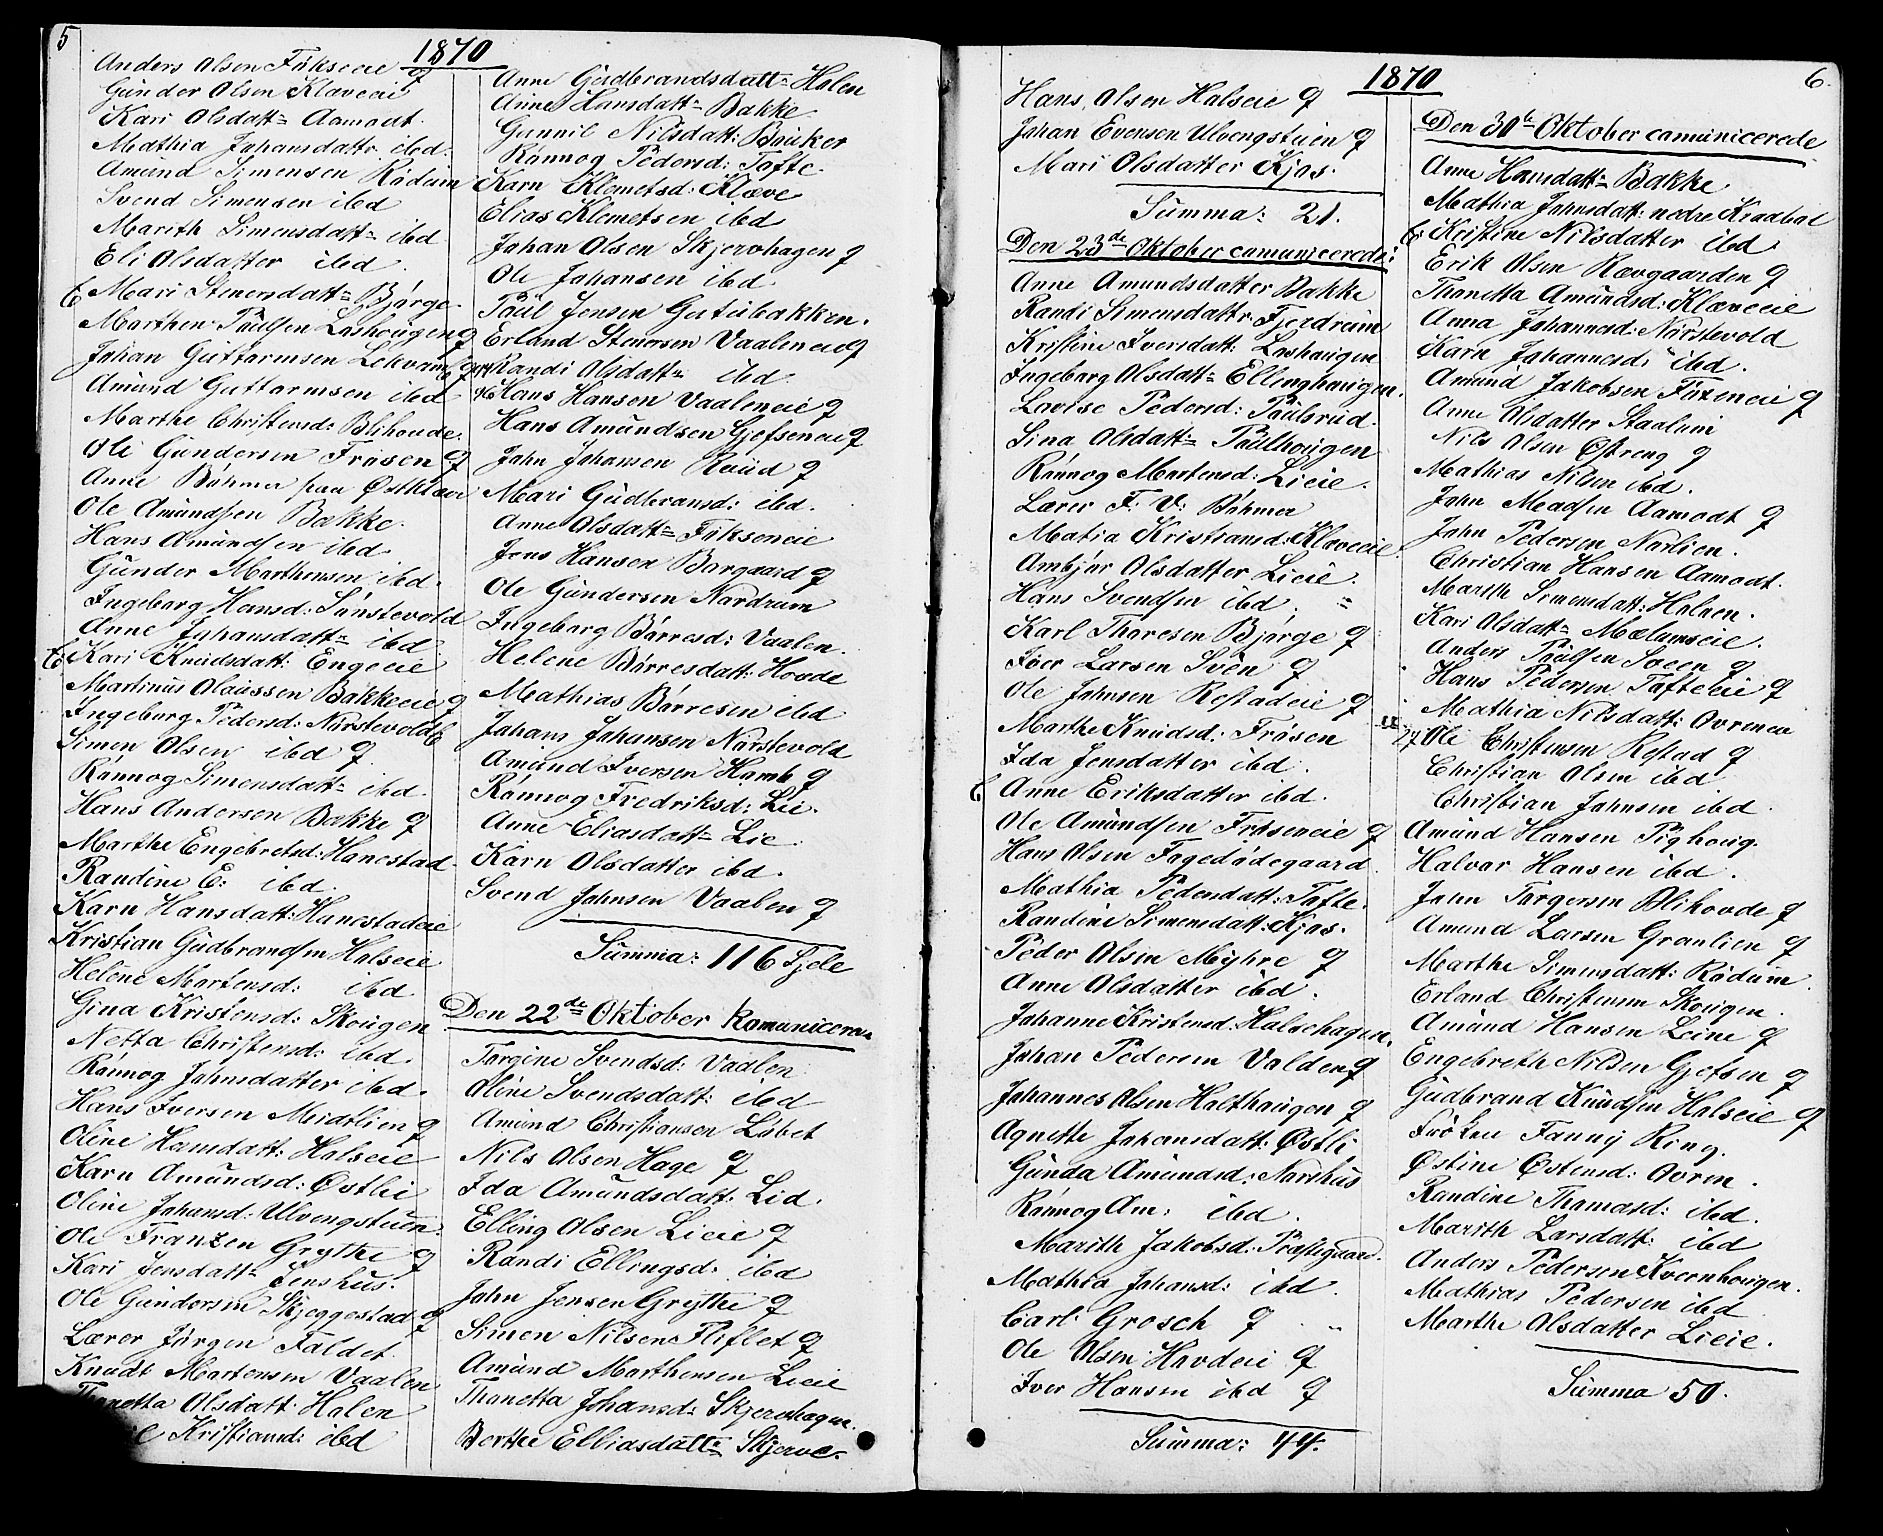 5
1870
Anders Olsen Fükseeie q
Gunder Olsen Klæveeie
Kari Olsdatt= Aamodt.
Mathia Johansdattr. ibd.
Amünd Simensen Rüdüm
Svend Simensen ibd
Marith Simensdatt= ibd
Eli Olsdatter ibd.
E Mari Stenersdatt= Bjørge.
Marthen Paülsen Løshoügen q
Johan Güttormsen Lekvam q
Amünd Guttormsen ibd
Marthe Christensd: Blihovde.
Ole Gündersen Frøsen q
Anne Bøhmer paa Østklæv
Ole Amündsen Bakke.
Hans Amündsen ibd.
Günder Marthensen ibd.
Ingeborg Hansd: Sønstevold
Anne Johansdatt= ibd
E Kari Knüdsdatt: Engeeie
Martinus Olaüssen Bakkeeie q
Ingeborg Pedersd: Nørstevold E
Simen Olsen ibd q
Rønnog Simensdatt= ibd.
Hans Andersen Bakke q
Marthe Engebretsd: Hanestad.
Randine E: ibd.
Karn Hansdatt: Hanestadeie
Kristian Güdbrandsen Halseie
Helene Martensd: ibd
Gina Kristensd: Skoügen
Netta Christensd: ibd.
Rønnog Johnsdatter ibd.
Hans Iversen Midtlien q
Oline Hansdatt: Halseie
Karn Amündsd: Østlie
Oline Johansd: Ulvengstüen.
Ole Franzen Grythe q
Kari Jensdatt= Jenshüs.
Ole Gündersen Skjeggestad q
Lærer Jørgen Faldet
Knüdt Martensen Vaalen
Olsdatt: Holen
Kristiansd: ibd
Anne Güdbrandsdatt= Holen
Anne Hansdatt= Bakke
Gunnil Nilsdatt: Brüker
Rønnog Pedersd: Tofte
Karn Klemetsd: Klæve
Elias Klemetsen ibd
Johan Olsen Skjervhagen q
Ole Johansen ibd.
Paül Jensen Gutübakken.
Erland Stenersen Vaaleneie q
Randi Olsdatt= ibd
Hans Hansen Vaaleneie q
Hans Amündsen Gjefseneie q
John Johansen Roüd q
Mari Güdbransd: ibd.
Anne Olsdatt= Füksoneie
Jens Hansen Borgaard q
Ole Gündersen Nordrum
Ingeborg Børresd: Vaalen.
Helene Børresdatt: Hovde
Mathias Børresen ibd
Johans Johansen Nørstevold
Amünd Iversen Hamb q
Rønnog Fredriksd: Lie.
Anne Eliasdatt= Lie.
Karn Olsdatter ibd.
Svend Johnsen Vaalen q
Summa: 116 Sjele
Den 22de Oktober Komunicera
Torgine Svendsd: Vaalen
Oline Svendsdatt: ibd
Amünd Christiansen Løbet
Nils Olsen Hage q
Ida Amündsdatt. Lid.
Elling Olsen Lieie q
Randi Ellingsd. ibd
John Jensen Grythe q
Simen Nilsen Fliflet q
Amünd Marthensen Lieie
Thonetta Johansd: Skjervhagn.
Berthe Elliasdatt= Skjerve.
1870
6.
Hans Olsen Halseie q
Johan Evensen Ulvengstüen q
Mari Olsdatter Kjos.
Summa: 21.
Den 23de Oktober comunicerede:
Anne Amundsdatter Bakke
Randi Simensdattr. Fjerdrum
Kristine Iversdatt: Løshaügen
Ingeborg Olsdatt= Ellinghaügen.
Lovise Pedersd: Paülsrüd.
Sina Olsdatt= Paülhoügen
Rønnog Martensd: Lieie.
Lærer F. V: Bøhmer
Matia Kristiansd: Klæveeie
Ambjør Olsdatter Lieie.
Hans Svendsen ibd. =
Karl Thoresen Bjørge q
Iver Larsen Svén q
Ole Johnsen Restadeie q
Marthe Knüdsd: Frøsen
Ida Jensdatter ibd.
E Anne Eriksdatter ibd.
Ole Amündsen Frøseneie q
Hans Olsen Fagedødegaard
Mathia Pedersdatt: Tofte.
Randine Simensdatt: Kjos.
Peder Olsen Myhre q
Anne Olsdatter ibd.
Johanne Kristensd: Halsehagen.
Johan Pedersen Volden q
Johannes Olsen Halthaügen q
Agnethe Johansdatt: Østli
Günda Amündsd: Nordhüs
Rønnog Am: ibd.
Marith Jakobsd: Præstegaard.
Mathia Johansd: ibd.
Carl Grosch q
Ole Olsen Hovdeie q
Iver Hansen ibd q
Summa: 44.
Den 30te Oktober comunicerede
Anne Hansdatt= Bakke
Mathia Johnsdatt: nedre Kraabøl
E Kristine Nilsdatter ibd
Erik Olsen Rævgaarden q
Thonetta Amündsd: Klæveeie
Anna Johannesd: Nørstevold
Karn Johannesd: ibd.
Amünd Jakobsen Foxeneie q
Anne Olsdatter Staalvin
Nils Olsen Østreng q
Mathias Nilsen ibd.
John Meadsen Aamodt q
John Pedersen Nørlien.
Christian Hansen Aamodt.
Marith Simensdatt: Holmen.
Kari Olsdatt= Mælumseie.
Anders Paülsen Sveen q
Hans Pedersen Tofteeie q
Mathia Nilsdatt: Ovrenen
Ole Christensen Restad q
Christian Olsen ibd
Christian Johnsen ibd.
Amünd Hansen Pighoüg.
Halvor Hansen ibd.
John Torgersen Blihovde q
Amund Larsen Granlien q
Marthe Simensdatt: Rüdüm.
Erland Christensen Skoügen.
Amünd Hansen Leine q
Engebreth Nilsen Gjefsen q
Güdbrand Knüdsen Halseie q
Frøken Fanny Ring.
Østine Østensd: Ovren.
Randine Thomasd: ibd.
Marith Larsdatt: ibd
Anders Pedersen Kvernhoügen.
Mathias Pedersen ibd
Marthe Olsdatter Lieie.
Summa 50.